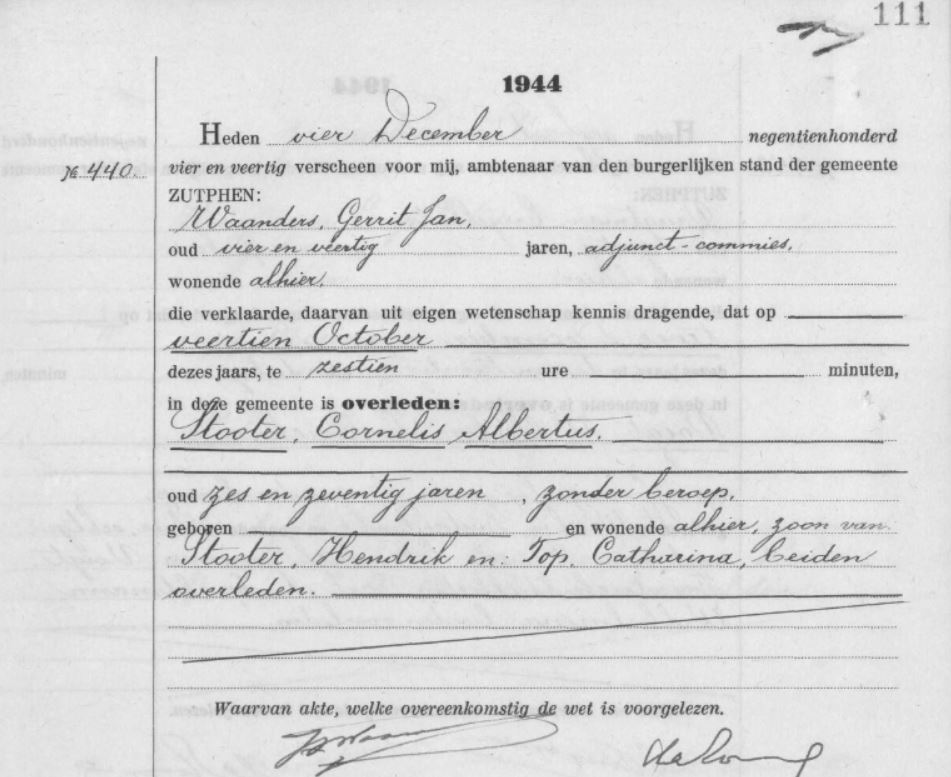 111
1944
Heden vier December negentienhonderd
№ 440. vier en veertig verscheen voor mij, ambtenaar van den burgerlijken stand der gemeente
ZUTPHEN:
Waanders, Gerrit Jan,
oud vier en veertig jaren, adjunct-commies,
wonende alhier.
die verklaarde, daarvan uit eigen wetenschap kennis dragende, dat op
veertien October
dezes jaars, te zestien ure minuten,
in deze gemeente is overleden:
Stooter, Cornelis Albertus,
oud zes en zeventig jaren, zonder beroep,
geboren en wonende alhier, zoon van
Stooter, Hendrik en Top, Catharina, beiden
overleden.
Waarvan akte, welke overeenkomstig de wet is voorgelezen.